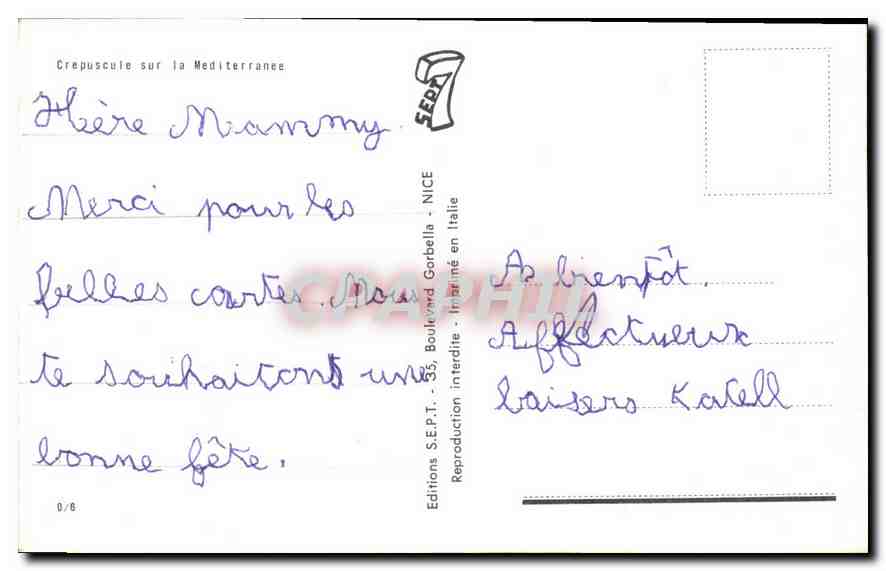 Crepuscule sur la Mediterranee
Chère Mammy.
Merci pour les
belles cartes. Nous
te souhaitons une
bonne fête.
0/6
SEPT 7
Editions S.E.P.T. - 35, Boulevard Gorbella - NICE
Reproduction interdite - Imprimé en Italie
CPAPHIL
A bientôt.
Affectueux
baisers Katell